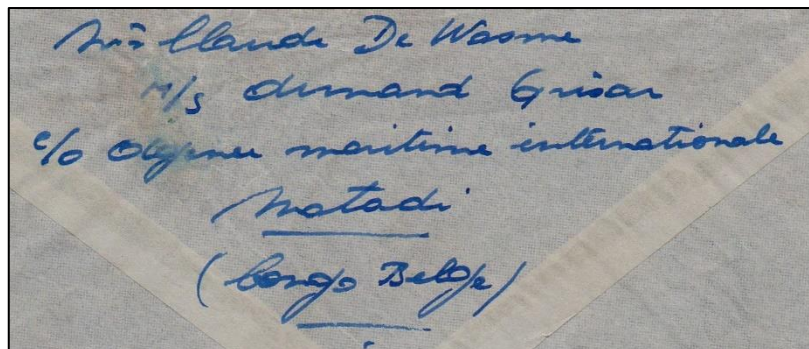 Claude De Wasme
M/S Armand Grisar
c/o Agence maritime internationale
Matadi
(Congo Belge)